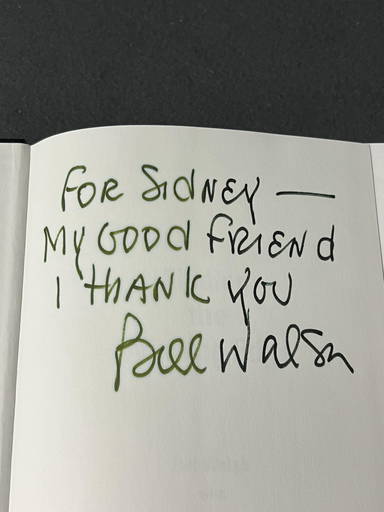 FOR SIDNEY —
MY GOOD FRIEND
I THANK YOU
Bill Walsh